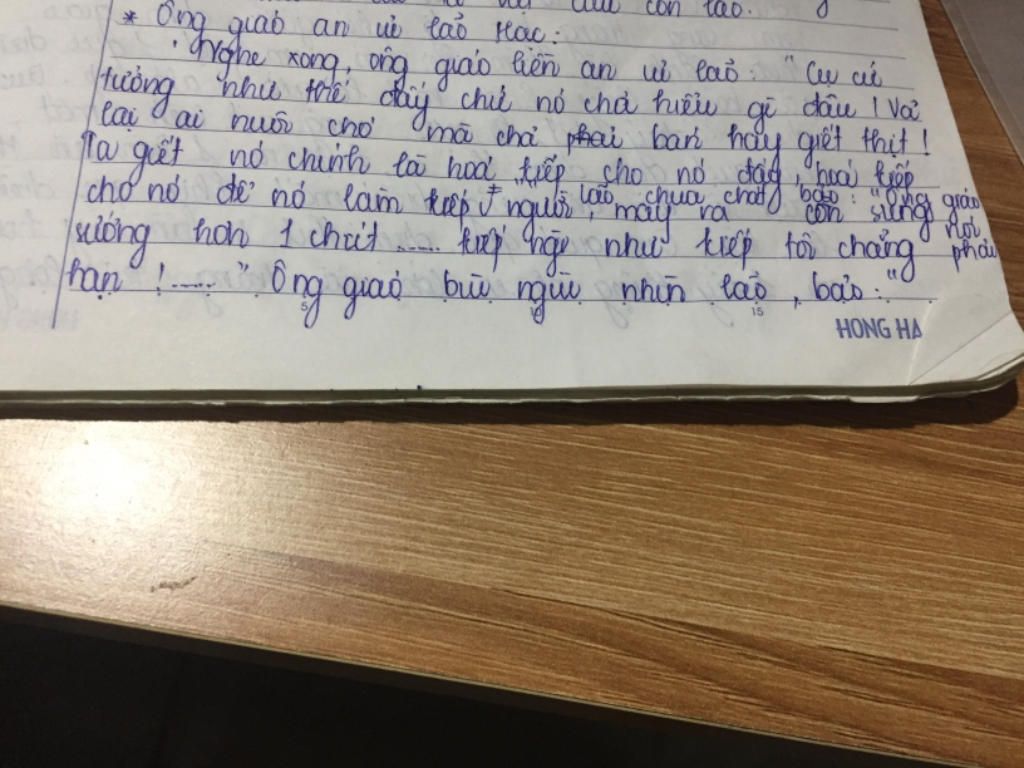 con lão.
* Ông giáo an ủi Lão Hạc:
. Nghe xong, ông giáo liền an ủi lão: "Cụ cứ
tưởng như thế đấy chứ nó chả hiểu gì đâu! Vả
lại ai nuôi chó mà chả phải bán hay giết thịt!
Ta giết nó chính là hoá kiếp cho nó đấy, hoá kiếp
cho nó để nó làm kiếp ‡ người, may ra còn sung
" lão chua chát bảo: "Ông giáo nói phải
sướng hơn 1 chút..... kiếp ngừ như kiếp tôi chẳng
hạn !....." Ông giáo bùi ngùi nhìn lão, bảo: "
5 10 15
HONG HA